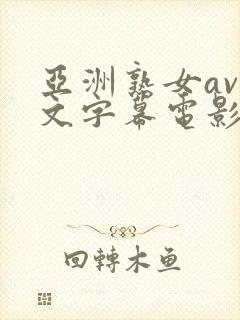 亞洲熟女av
文字幕電影
回轉木魚